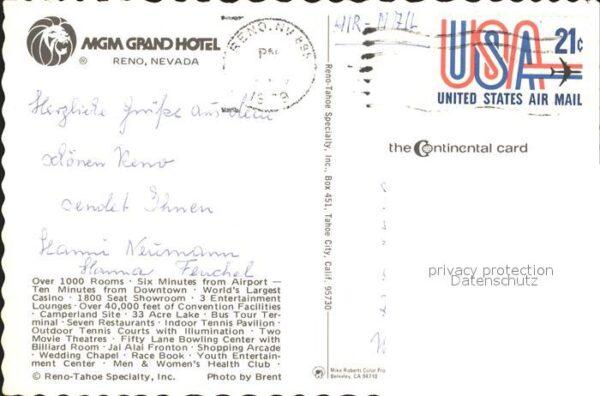 MGM GRAND HOTEL
®
RENO, NEVADA
RENO, NV 895
PM
AIR-MAIL
USA 21¢
UNITED STATES AIR MAIL
the Continental card
Herzliche Grüße aus dem
schönen Reno
sendet Ihnen
Hanni Neumann
Hanna Feuchel
Over 1000 Rooms · Six Minutes from Airport —
Ten Minutes from Downtown · World's Largest
Casino · 1800 Seat Showroom · 3 Entertainment
Lounges · Over 40,000 feet of Convention Facilities
· Camperland Site · 33 Acre Lake · Bus Tour Ter-
minal · Seven Restaurants · Indoor Tennis Pavilion ·
Outdoor Tennis Courts with Illumination · Two
Movie Theatres · Fifty Lane Bowling Center with
Billiard Room · Jai Alai Fronton · Shopping Arcade
· Wedding Chapel · Race Book · Youth Entertain-
ment Center · Men & Women's Health Club ·
© Reno-Tahoe Specialty, Inc. Photo by Brent
Reno-Tahoe Specialty, Inc., Box 451, Tahoe City, Calif. 95730
Mike Roberts Color Pro
Berkeley, CA 94710
privacy protection
Datenschutz